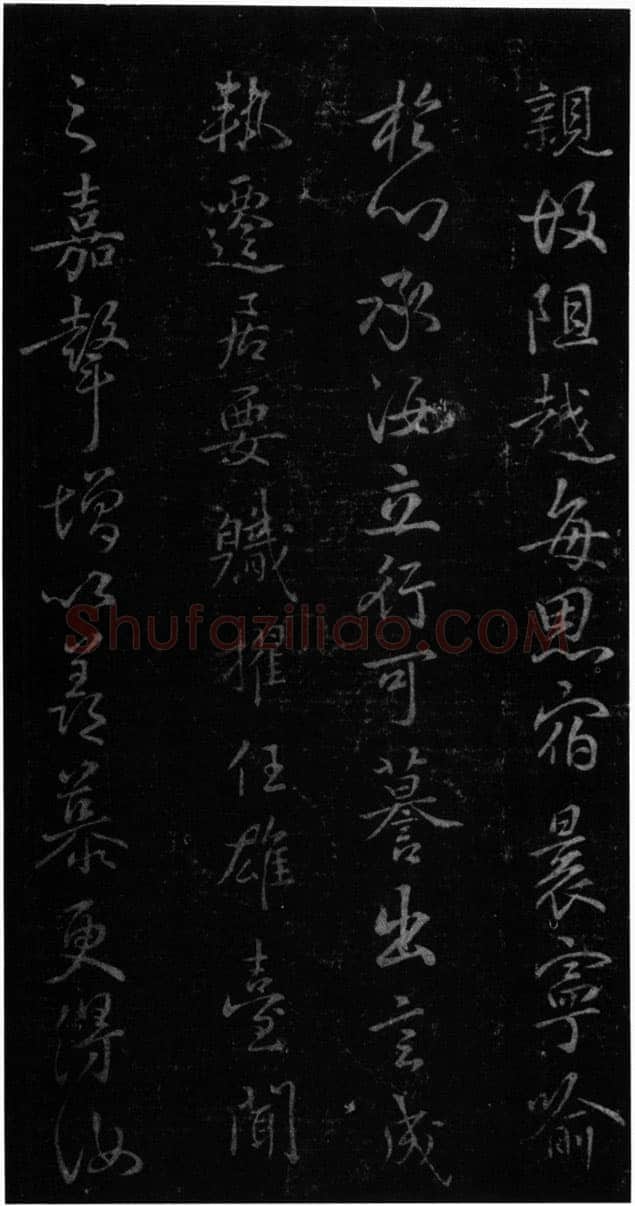 親故阻越每思宿晨寧喻
於心承汝立行可譽出言成
執遷居要職擢任雄臺聞
之嘉聲增以羨慕更得汝
Shufaziliao.COM